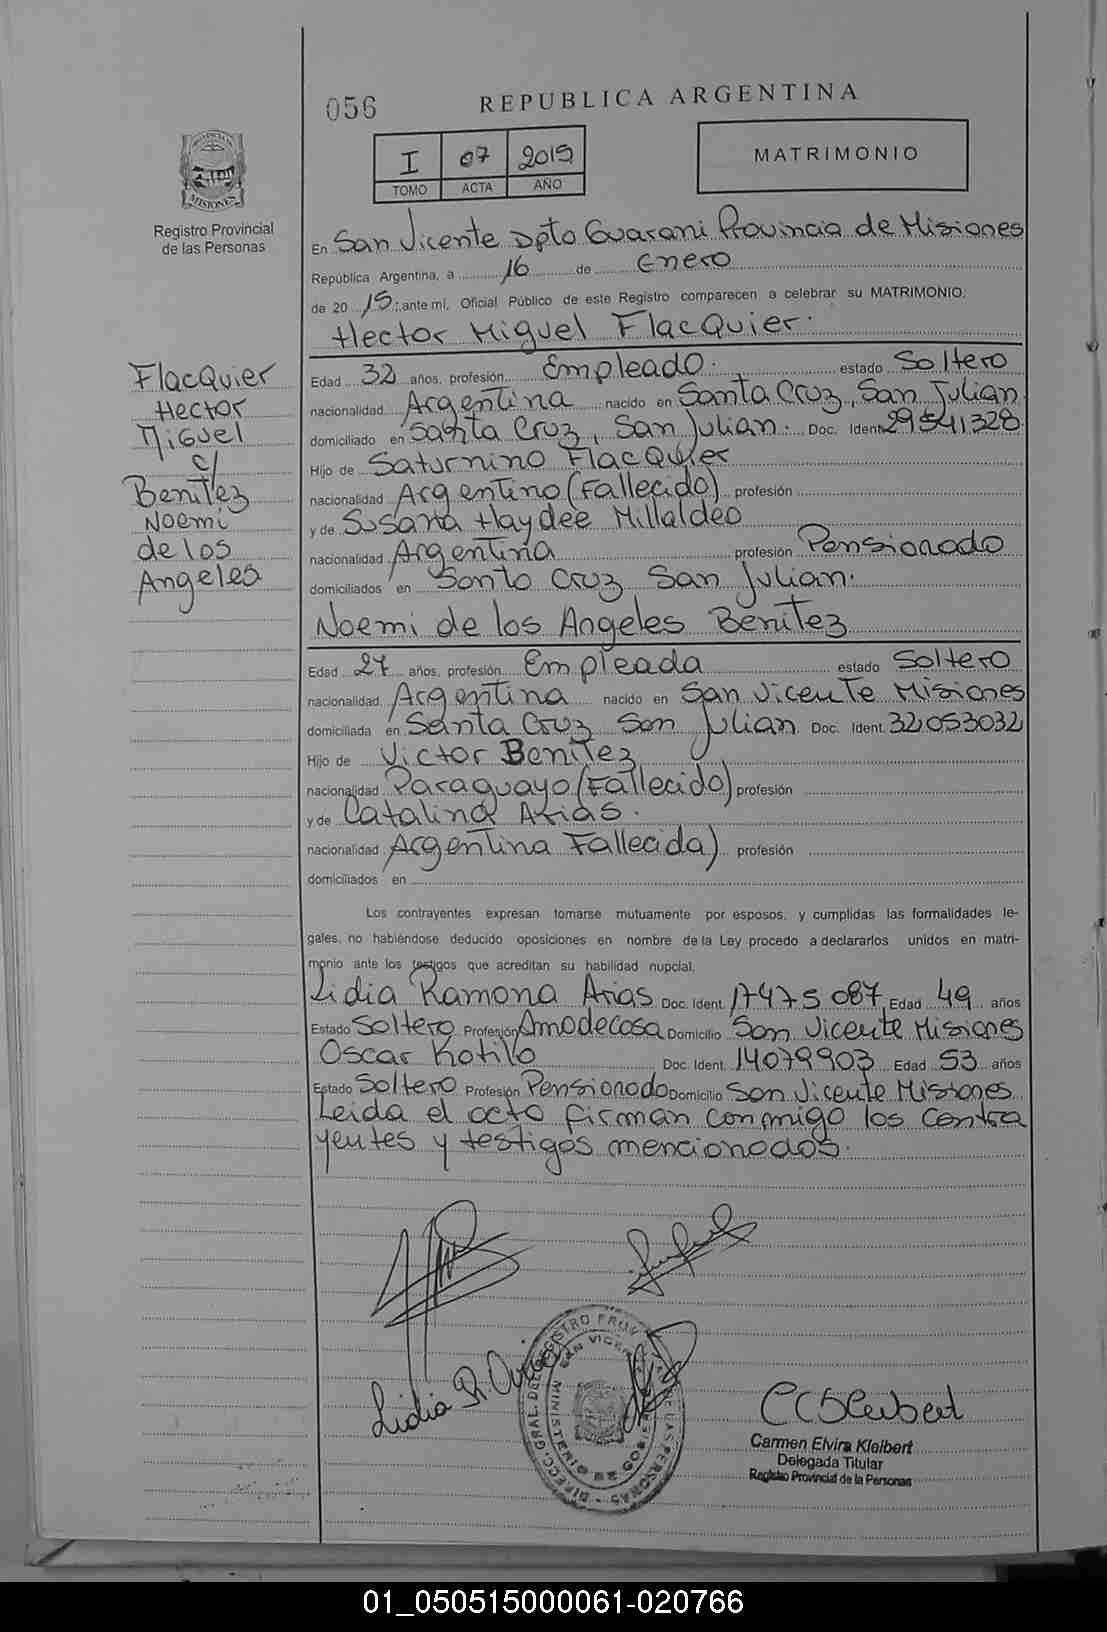 056
REPUBLICA ARGENTINA
I 07 2015
TOMO ACTA AÑO
MATRIMONIO
PROVINCIA DE
MISIONES
Registro Provincial
de las Personas
En San Vicente Dpto Guarani Provincia de Misiones
República Argentina, a 16 de Enero
de 20 15 ; ante mí, Oficial Público de este Registro comparecen a celebrar su MATRIMONIO:
Hector Miguel FlacQuier.
FlacQuier
Hector
Miguel
c/
Benitez
Noemi
de los
Angeles
Edad 32 años, profesión Empleado. estado Soltero
nacionalidad Argentina nacido en Santa Cruz, San Julian
domiciliado en Santa Cruz, San Julian. Doc. Ident. 29541328
Hijo de Saturnino FlacQuier
nacionalidad Argentino (Fallecido) profesión
y de Susana Haydee Millaldeo
nacionalidad Argentina profesión Pensionado
domiciliados en Santa Cruz San Julian.
Noemi de los Angeles Benitez
Edad 27 años, profesión Empleada estado Soltero
nacionalidad Argentina nacido en San Vicente Misiones
domiciliada en Santa Cruz San Julian Doc. Ident. 32053032
Hijo de Victor Benitez
nacionalidad Paraguayo (Fallecido) profesión
y de Catalina Arias.
nacionalidad Argentina Fallecida) profesión
domiciliados en
Los contrayentes expresan tomarse mutuamente por esposos, y cumplidas las formalidades le-
gales, no habiéndose deducido oposiciones en nombre de la Ley procedo a declararlos unidos en matri-
monio ante los testigos que acreditan su habilidad nupcial.
Lidia Ramona Arias Doc. Ident. 17475087 Edad 49 años
Estado Soltero Profesión Amadecasa Domicilio San Vicente Misiones
Oscar Doc. Ident. 14079903 Edad 53 años
Estado Soltero Profesión Pensionado Domicilio San Vicente Misiones
Leida el acta firman conmigo los contra
yentes y testigos mencionados.
Lidia R. Arias
Carmen Elvira Kleibert
Delegada Titular
Registro Provincial de la Personas
01_050515000061-020766